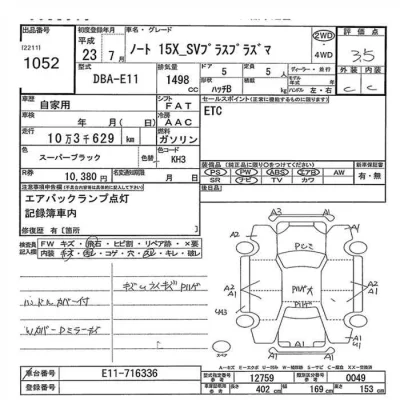 出品番号
(2211)
1052
初度登録年月
平成
23年7月
車名・グレード
ノート 15X_SVプラスプラズマ
2WD
4WD
評価点
3.5
型式
DBA-E11
排気量
1498
CC
ドア
5
形状
ハッチB
定員
5
人
ディーラー・並行
ハンドル 左・右
外装
内装
C
C
車歴
自家用
シフト
FAT
セールスポイント(正常に機能するものに限ります)
ETC
車検
年 月(日)
冷房
AAC
走行
10万3千629 km
燃料
ガソリン
色
スーパーブラック
色替
色コード
KH3
装備品(純正品に限り○をつけてください)
PS PW ABS エアB AW
SR ナビ TV カワ
新車保証書
有・無
R券
10,380 円
名変期限
月 日
後日品
注意事項申告欄(不具合内容等は具体的に記入して下さい)
エアバックランプ点灯
記録簿車内
修復歴 有(箇所 )
検査員
記入欄
FW キズ・飛石・ヒビ割・リペア跡・×要
内装 キズ・汚レ・コゲ・穴・凸凹・キレ・破レ
ハンドルカバー付
A3
A1
A2
A1
U3
A2
A1
A1
A1
U1
スペア
A−キズ E−エクボ U−凹み W−補修跡 S−サビ C−腐食 XX−交換済
車台番号
E11-716336
登録番号
型式指定番号
12759
類別区分番号
0049
長さ
402 cm
幅
169 cm
高さ
153 cm